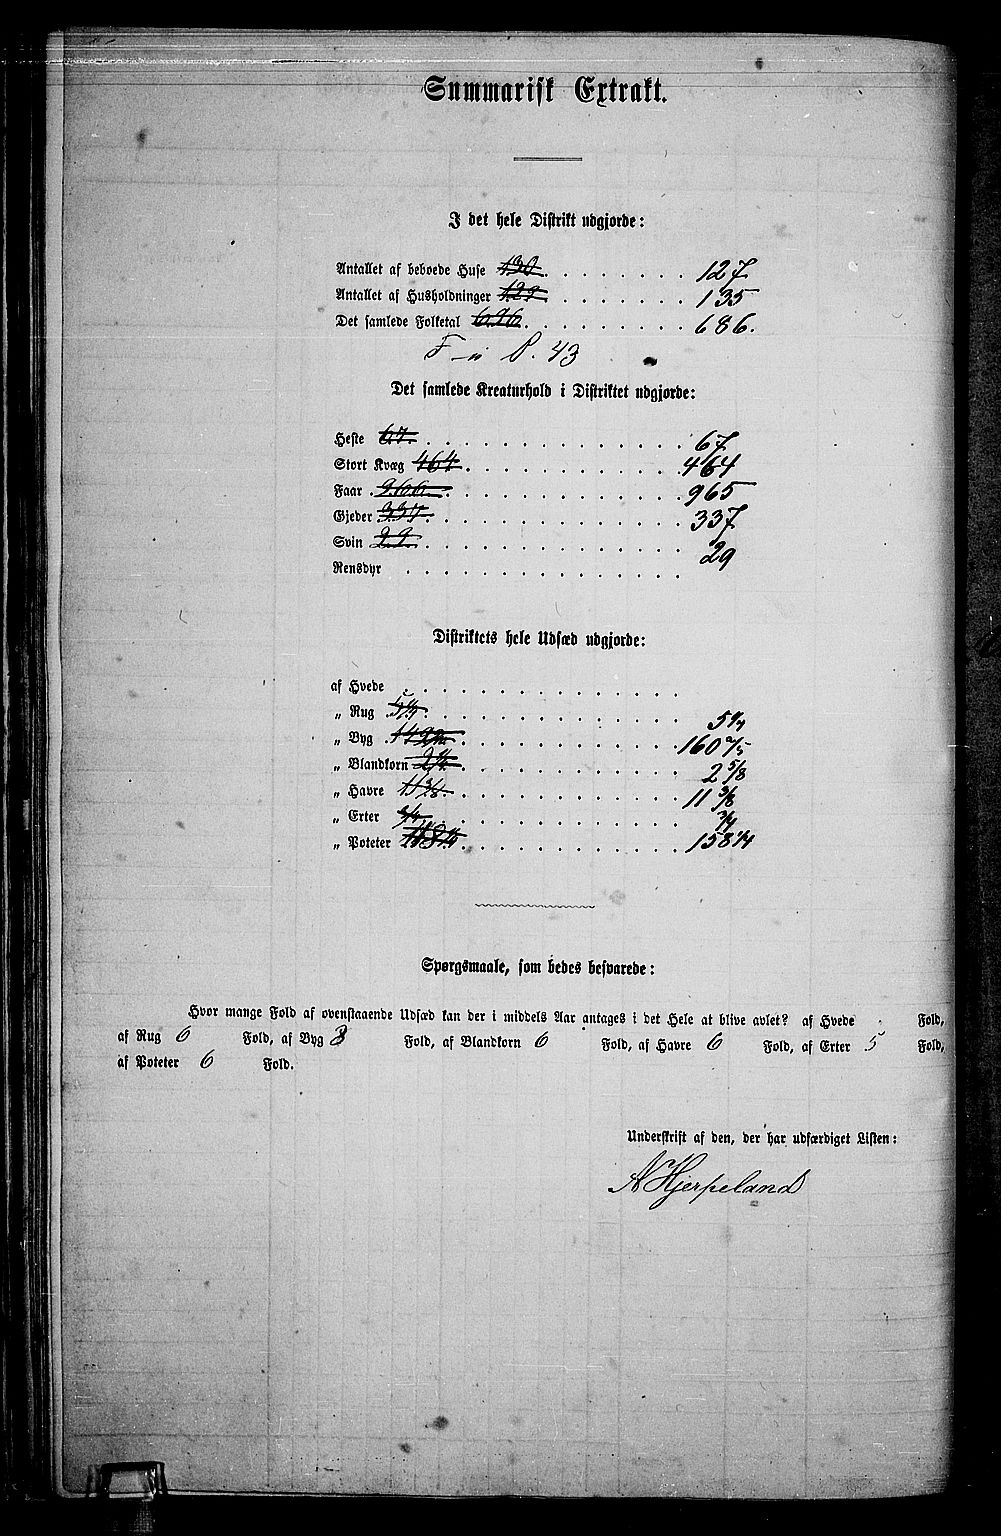 Summarisk Extrakt.
I det hele Distrikt udgjorde:
Antallet af beboede Huse 130 . . . . . . . . 127
Antallet af Husholdninger 129 . . . . . . . 135
Det samlede Folketal 696 . . . . . . . . . 686.
43
Det samlede Kreaturhold i Distriktet udgjorde:
Heste 67. . . . . . . . . . . . . . . 67
Stort Kvæg 464 . . . . . . . . . . . . 464
Faar . 966 . . . . . . . . . . . . . 965
Gjeder 337. . . . . . . . . . . . . . 337
Svin 29 . . . . . . . . . . . . . . . 29
Rensdyr . . . . . . . . . . . . . . .
Distriktets hele Udsæd udgjorde:
af Hvede . . . . . . . . . . . . . . .
„ Rug 5 1/4 . . . . . . . . . . . . . . 5 1/4
„ Byg . . . . . . . . . . . . . 160
„ Blandkorn . . . . . . . . . . . . 2 5/8
„ Havre 11 3/8 . . . . . . . . . . . . . 11 3/8
„ Erter 3/4 . . . . . . . . . . . . . . 3/4
„ Poteter . . . . . . . . . . . . 158 1/4
Spørgsmaale, som bedes besvarede:
Hvor mange Fold af ovenstaaende Udsæd kan der i middels Aar antages i det Hele at blive avlet? af Hvede Fold,
af Rug 6 Fold, af Byg 8 Fold, af Blandkorn 6 Fold, af Havre 6 Fold, af Erter 5 Fold,
af Poteter 6 Fold.
Underskrift af den, der har udfærdiget Listen:
A Hjerpeland